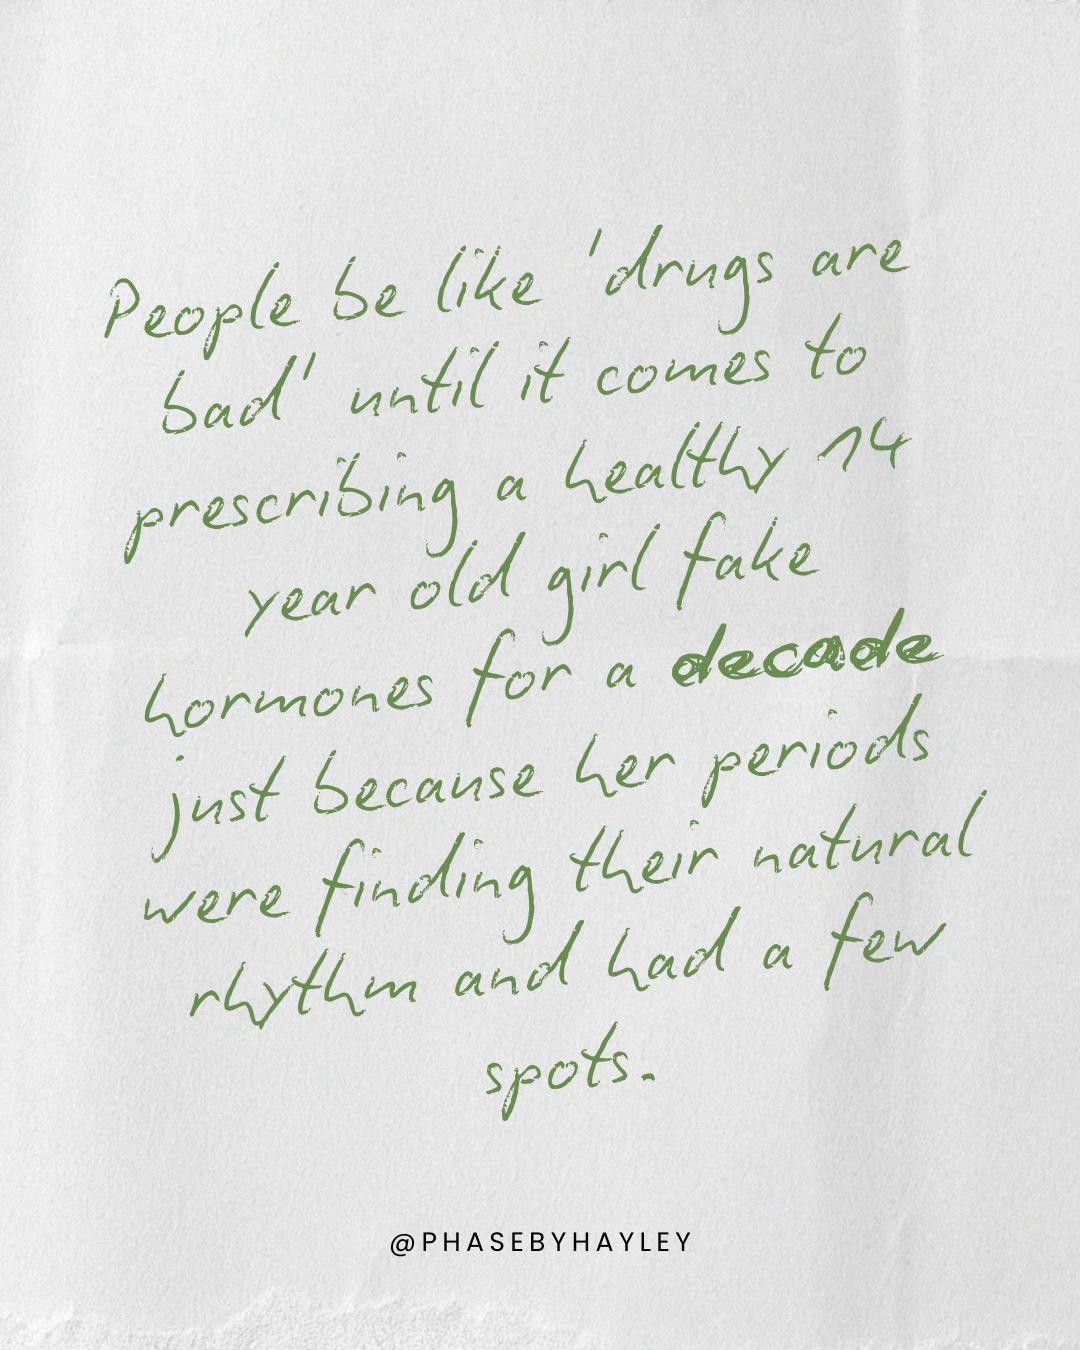 People be like 'drugs are
bad' until it comes to
prescribing a healthy 14
year old girl fake
hormones for a decade
just because her periods
were finding their natural
rhythm and had a few
spots.
@PHASEBYHAYLEY